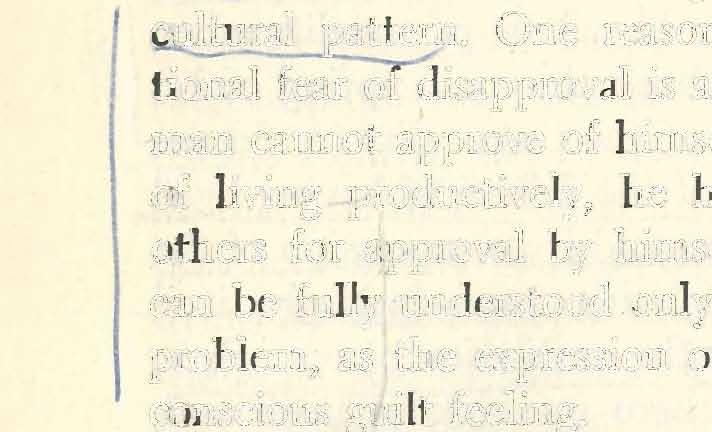 cultural pattern. One reason
tional fear of disapproval is a
man cannot approve of himse
of living productively, he h
others for approval by himse
can be fully understood only
problem, as the expression o
conscious guilt feeling.